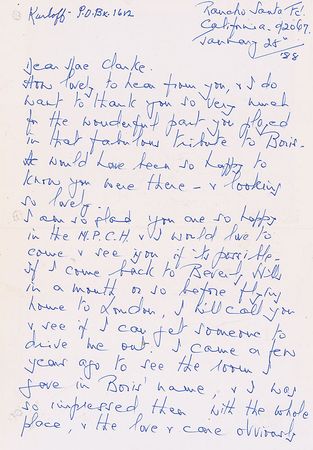 Karloff - P.O. Bx. 1612
Rancho Santa Fé.
California. 92067.
January 28th
'88
Dear Mae Clarke.
How lovely to hear from you, & I do
want to thank you so very much
for the wonderful part you played
in that fabulous tribute to Boris -
He would have been so happy to
know you were there - & looking
so lovely.
I am so glad you are so happy
in the M.P.C.H. & I would love to
come & see you if it's possible -
if I come back to Beverly Hills
in a month or so before flying
home to London, I will call you
& see if I can get someone to
drive me out. I came a few
years ago to see the room I
gave in Boris' name, & I was
so impressed then with the whole
place, & the love & care obviously